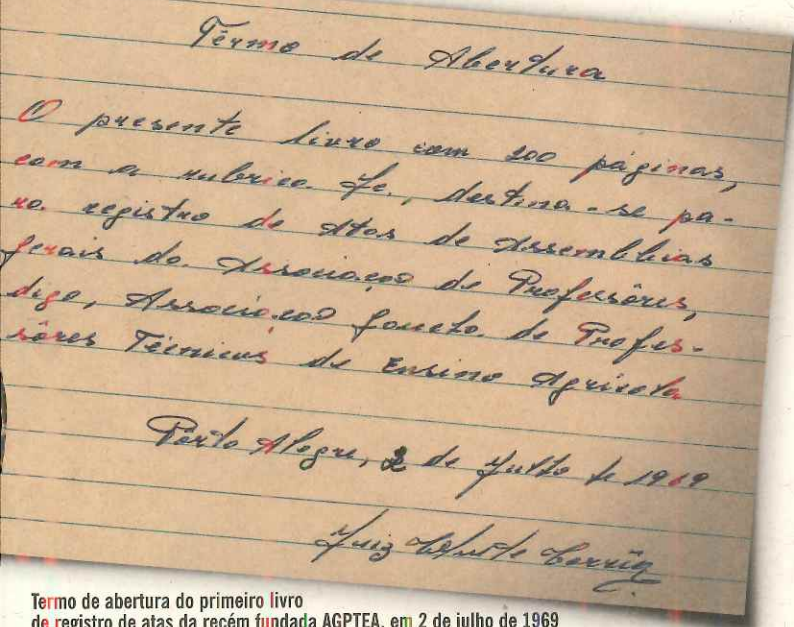 Têrmo de Abertura
O presente livro com 200 páginas,
com a rubrica, destina-se pa-
ra registro de Atas de Assembléias
gerais da Associação de Professôres,
digo, Associação Gaucha de Profes-
sôres Técnicos de Ensino Agrícola
Pôrto Alegre, 2 de Julho de 1969
Luiz
Termo de abertura do primeiro livro
de registro de atas da recém fundada AGPTEA, em 2 de julho de 1969